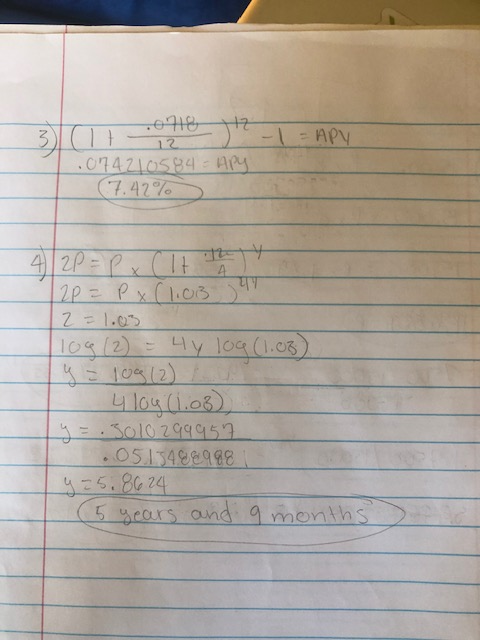 3) (1 + .0718/12)^12 - 1 = APY
.074210584 = APY
7.42%
4) 2P = P x (1 + .12/4)^y
2P = P x (1.03)^4y
2 = 1.03
log(2) = 4y log(1.03)
y = log(2)
4 log(1.03)
y = .3010299957
y = 5.8624
5 years and 9 months